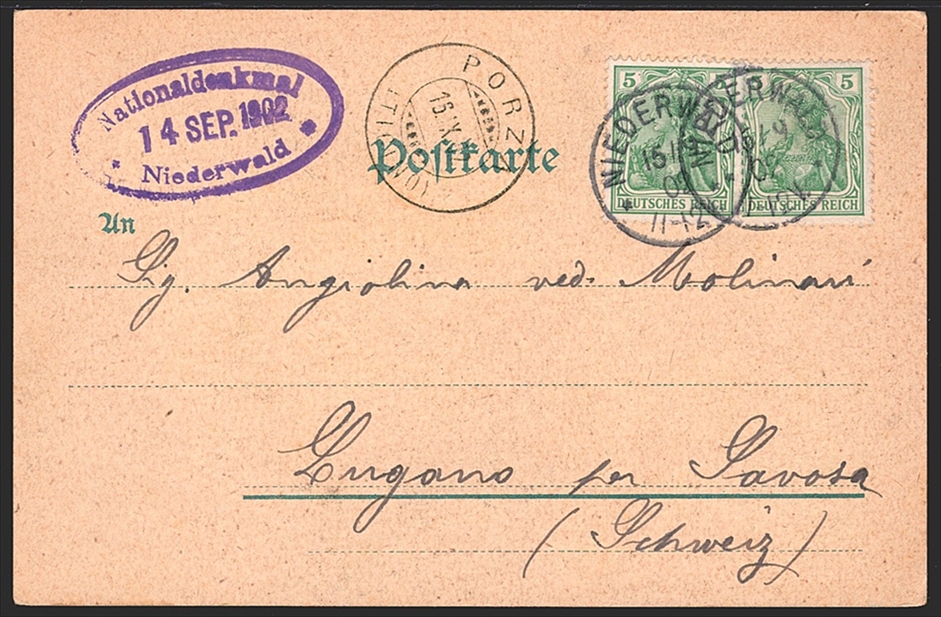 Nationaldenkmal
14 SEP. 1902
Niederwald
PORZA
16. IX
Postkarte
NIEDERWALD
15/9
02
11-12
NIEDERWALD
15/9
02
5
DEUTSCHES REICH
5
DEUTSCHES REICH
An
Sg. Angiolina ved. Molinari
Lugano per Savosa
(Schweiz)